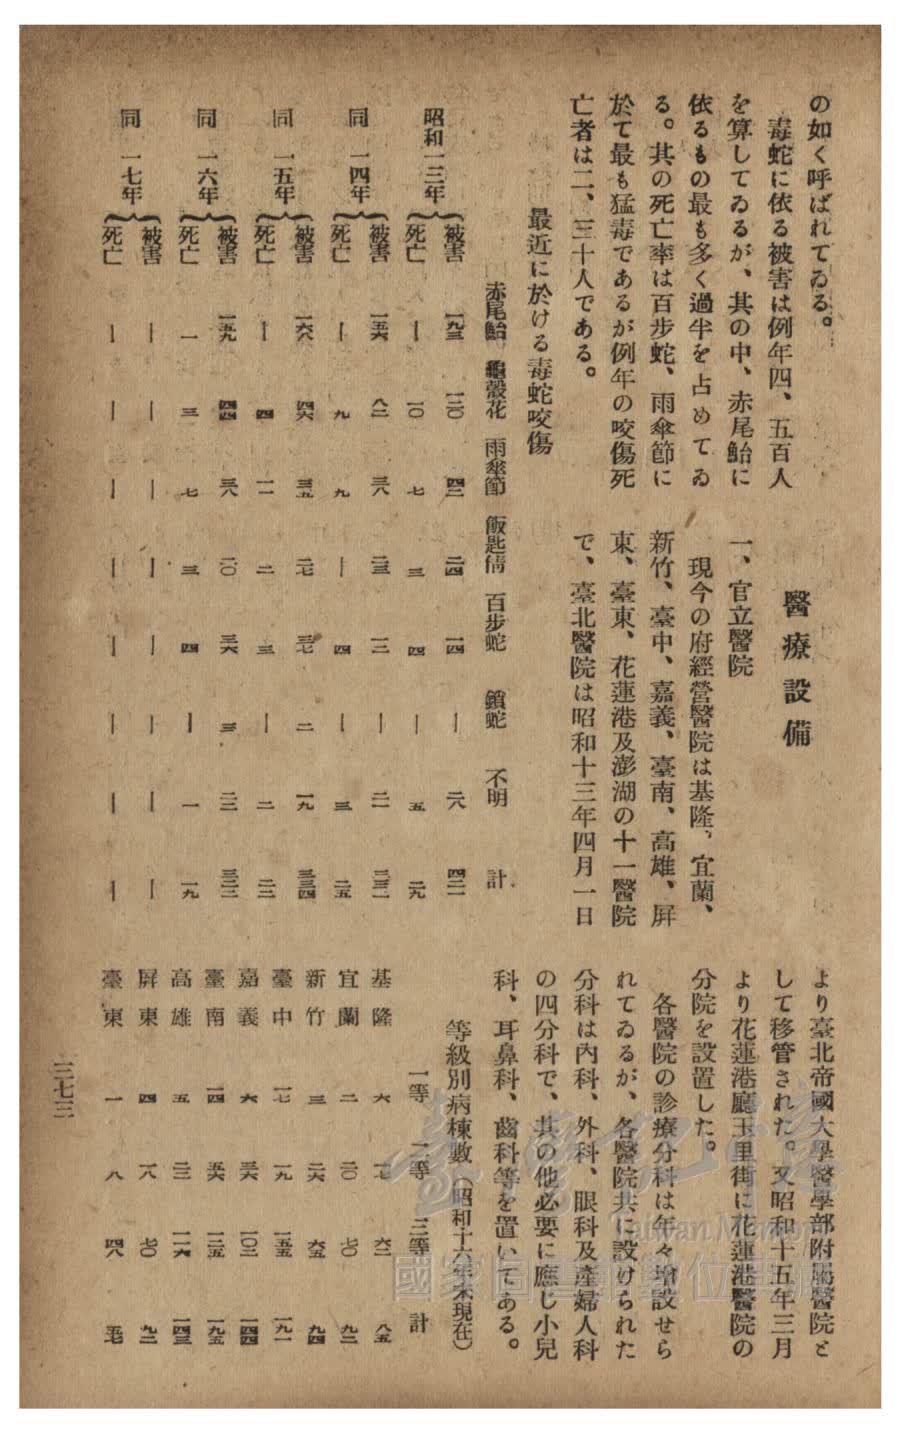 の如く呼ばれてゐる。
毒蛇に依る被害は例年四、五百人
を算してゐるが、其の中、赤尾鮐に
依るもの最も多く過半を占めてゐ
る。其の死亡率は百步蛇、雨傘節に
於て最も猛毒であるが例年の咬傷死
亡者は二、三十人である。
最近に於ける毒蛇咬傷
赤尾鮐 龜殼花 雨傘節 飯匙倩 百步蛇 鎖蛇 不明 計
昭和一三年 被害 一九三 一二〇 四三 二四 一四 — 二六 四二一
死亡 — 一〇 七 三 四 — 五 二九
同 一四年 被害 一五六 八二 三八 二三 一二 — 二一 三三二
死亡 — 九 九 — 四 — 三 二五
同 一五年 被害 一六八 四六 三五 二七 三七 二 一九 三三四
死亡 — 四 一一 二 三 — 二 二二
同 一六年 被害 一五九 四四 三八 二〇 三六 三 二二 三二二
死亡 一 三 七 三 四 — 一 一九
同 一七年 被害 — — — — — — — —
死亡 — — — — — — — —
醫療設備
一、官立醫院
現今の府經營醫院は基隆、宜蘭、
新竹、臺中、嘉義、臺南、高雄、屏
東、臺東、花蓮港及澎湖の十一醫院
で、臺北醫院は昭和十三年四月一日
より臺北帝國大學醫學部附屬醫院と
して移管された。又昭和十五年三月
より花蓮港廳玉里街に花蓮港醫院の
分院を設置した。
各醫院の診療分科は年々增設せら
れてゐるが、各醫院共に設けられた
分科は內科、外科、眼科及產婦人科
の四分科で、其の他必要に應じ小兒
科、耳鼻科、齒科等を置いてある。
等級別病棟數（昭和十六年末現在）
一等 二等 三等 計
基隆 六 一七 六二 八五
宜蘭 二 二〇 七〇 九二
新竹 三 二六 六五 九四
臺中 一七 一九 一五五 一九一
嘉義 六 三六 一〇二 一四四
臺南 一四 五六 一二五 一九五
高雄 五 二二 一一六 一四三
屏東 四 一八 七〇 九二
臺東 一 八 四八 五七
三七三
臺灣記憶
Taiwan Memory
國家圖書館數位典藏